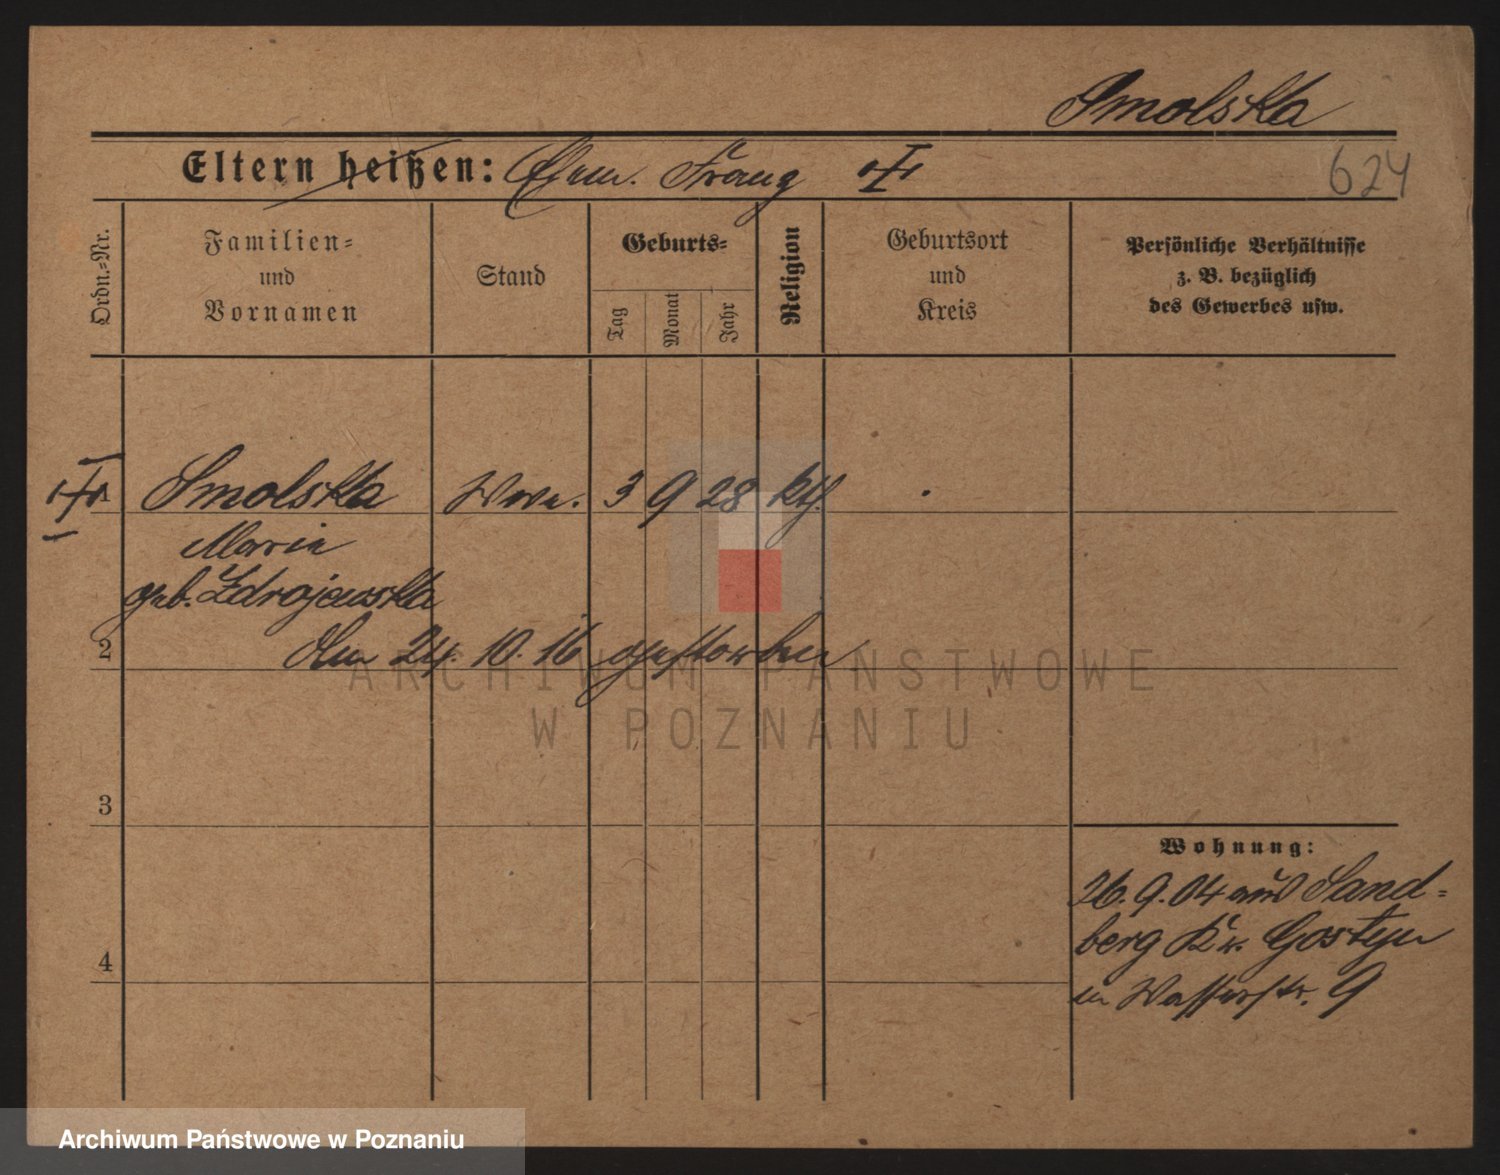 Smolska
Eltern heißen: Ehem. Franz
624
Ordn.-Nr.
Familien-
und
Vornamen
Stand
Geburts-
Tag
Monat
Jahr
Religion
Geburtsort
und
Kreis
Persönliche Verhältnisse
z. B. bezüglich
des Gewerbes usw.
Smolska Wwe. 3 9 28 kth.
Maria
geb. Zdrojewska
2 den 24. 10. 16 gestorben
ARCHIWUM PAŃSTWOWE
W POZNANIU
3
Wohnung:
26. 9. 04 aus Sand-
berg Kr. Gostyn
n Wasserstr. 9
4
Archiwum Państwowe w Poznaniu